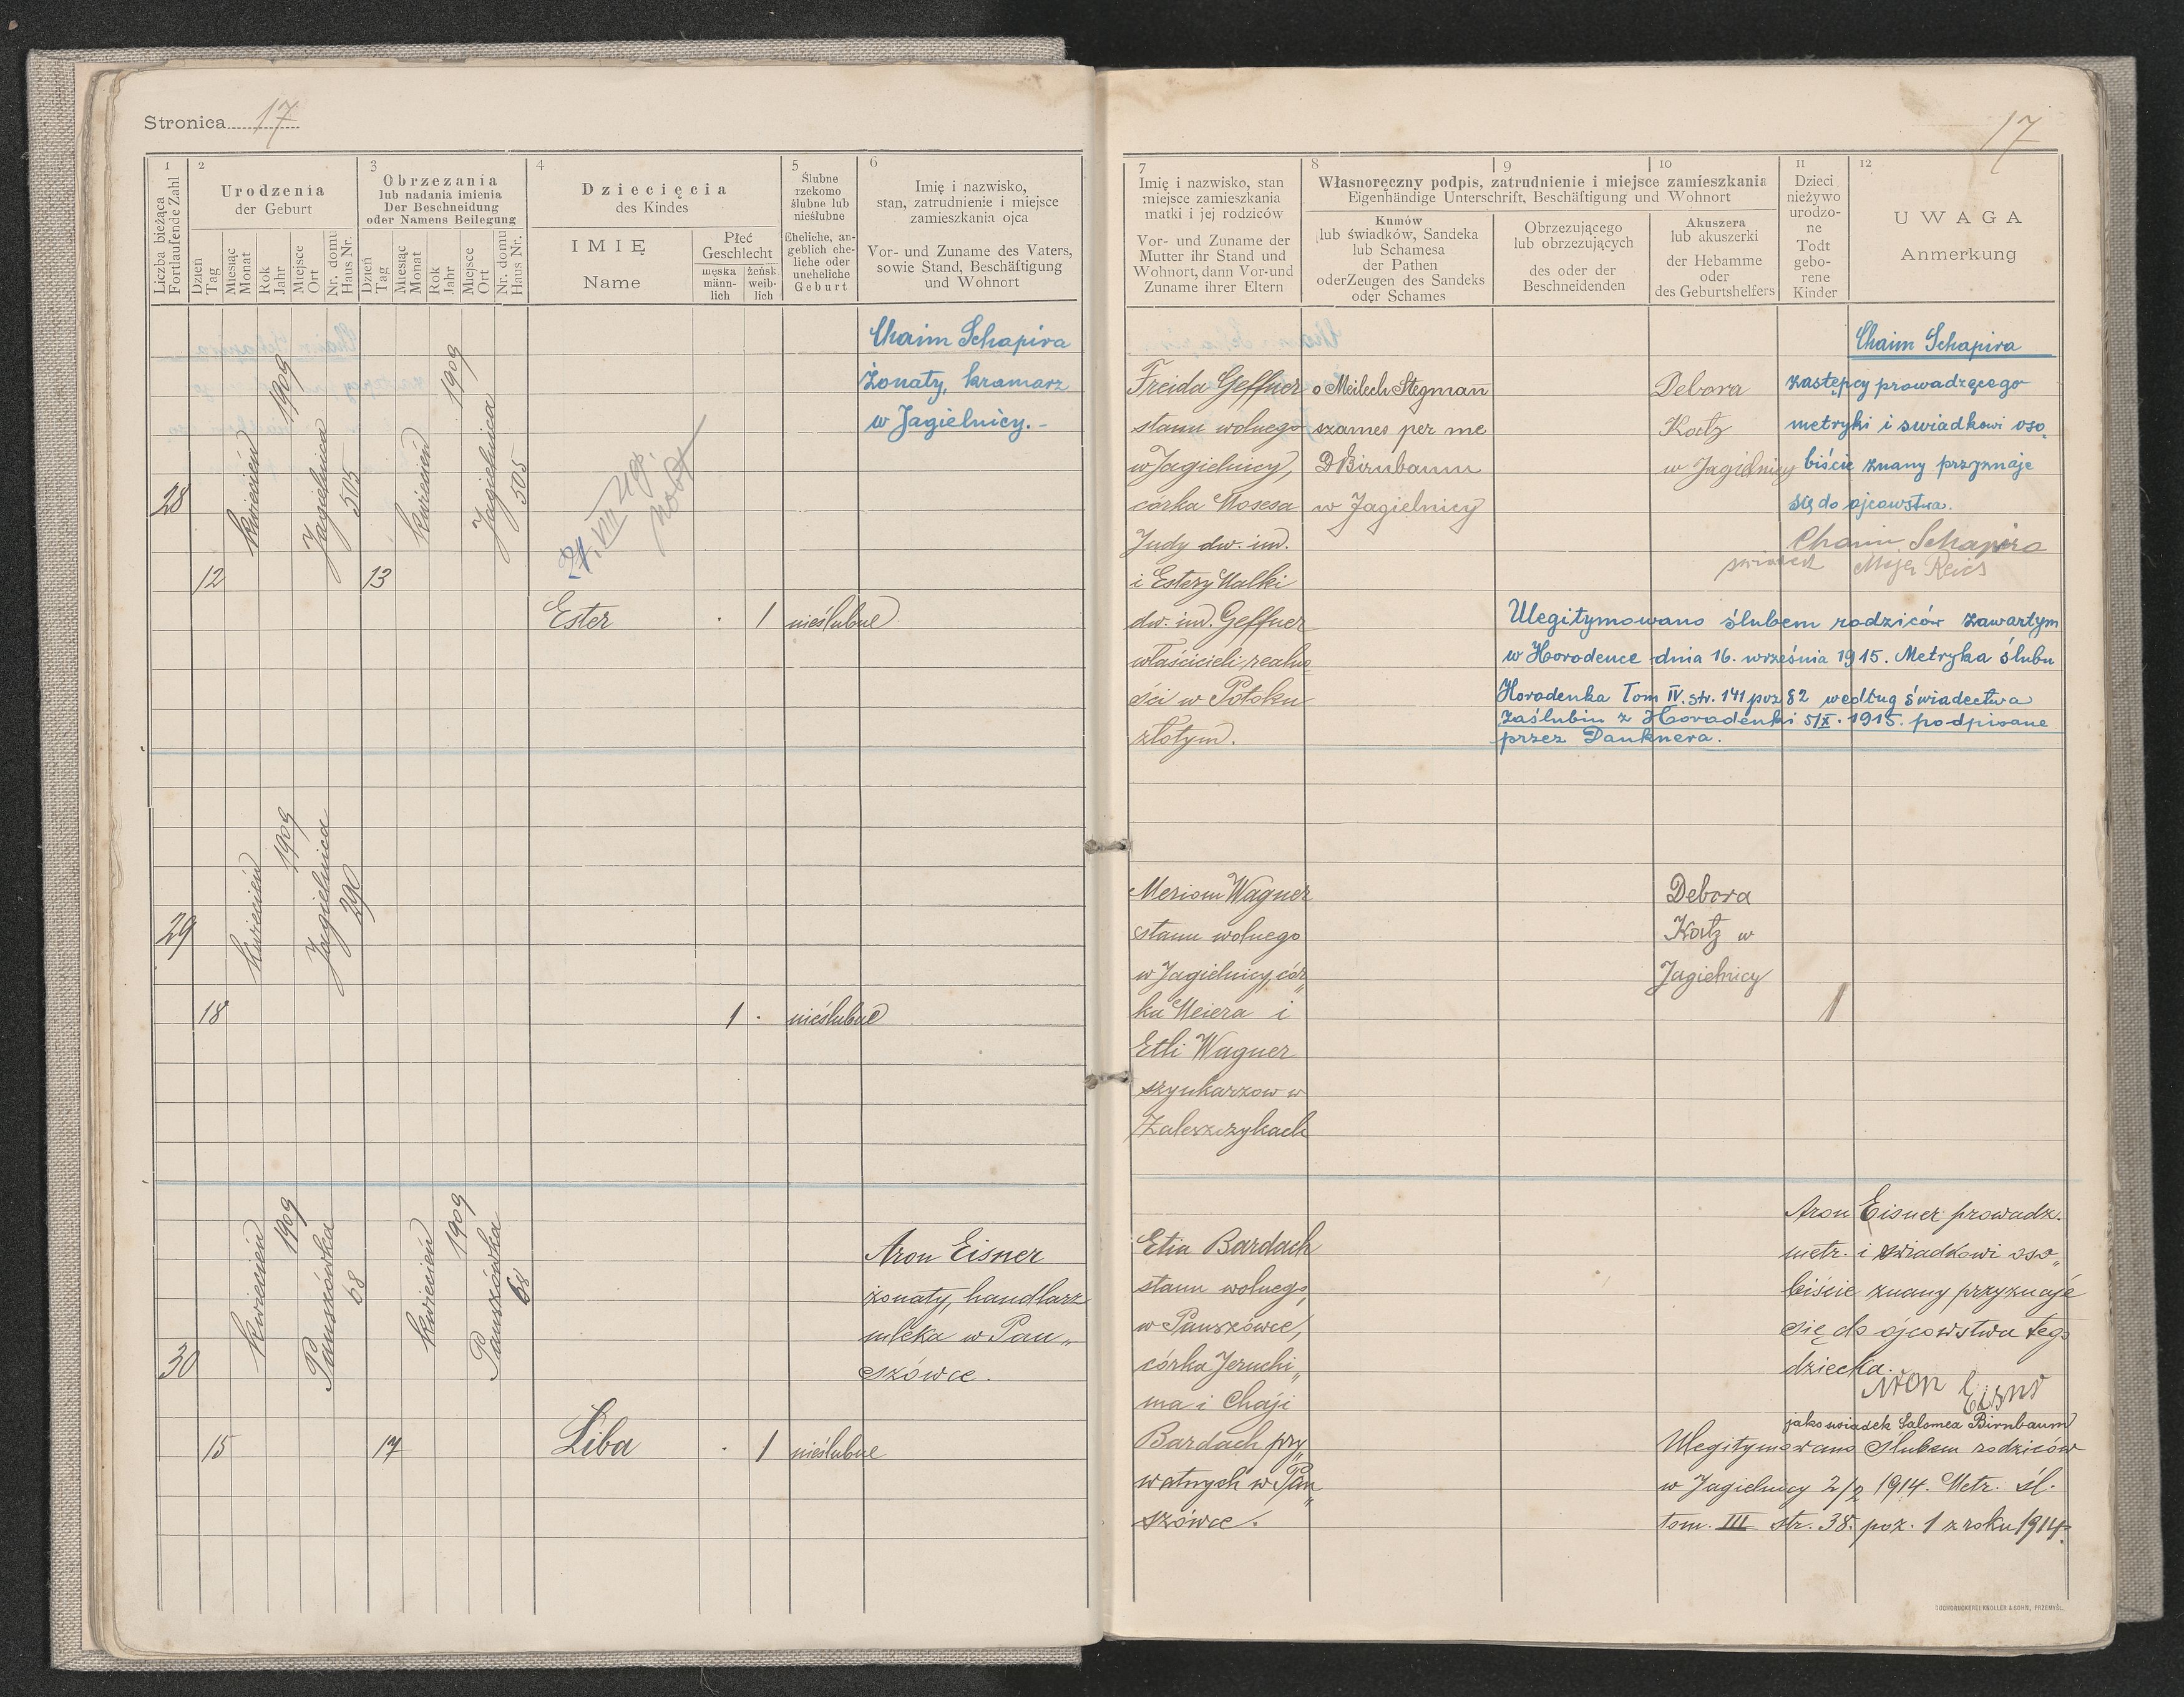 Stronica 17
1
Liczba bieżąca
Fortlaufende Zahl
2
Urodzenia
der Geburt
Dzień
Tag
Miesiąc
Monat
Rok
Jahr
Miejsce
Ort
Nr. domu
Haus Nr.
3
Obrzezania
lub nadania imienia
Der Beschneidung
oder Namens Beilegung
Dzień
Tag
Miesiąc
Monat
Rok
Jahr
Miejsce
Ort
Nr. domu
Haus Nr.
4
Dziecięcia
des Kindes
IMIĘ
Name
Płeć
Geschlecht
męska
männ-
lich
żeńsk
weib-
lich
5
Ślubne
rzekomo
ślubne lub
nieślubne
Eheliche, an-
geblich ehe-
liche oder
uneheliche
Geburt
6
Imię i nazwisko,
stan, zatrudnienie i miejsce
zamieszkania ojca
Vor- und Zuname des Vaters,
sowie Stand, Beschäftigung
und Wohnort
28
12
kwiecień
1909
Jagielnica
505
13
kwiecień
1909
Jagielnica
505
21. VIII
Ester
. 1
nieślubne
Chaim Schapira
żonaty, kramarz
w Jagielnicy.-
29
18
kwiecień
1909
Jagielnica
290
1 .
nieślubne
30
15
kwiecień
1909
Pauszówka
68
17
kwiecień
1909
Pauszówka
68
Liba
. 1
nieślubne
Aron Eisner
żonaty, handlarz
mleka w Pau„
szówce.
17
7
Imię i nazwisko, stan
miejsce zamieszkania
matki i jej rodziców
Vor- und Zuname der
Mutter ihr Stand und
Wohnort, dann Vor-und
Zuname ihrer Eltern
Własnoręczny podpis, zatrudnienie i miejsce zamieszkania
Eigenhändige Unterschrift, Beschäftigung und Wohnort
8
Kumów
lub świadków, Sandeka
lub Schamesa
der Pathen
oderZeugen des Sandeks
oder Schames
9
Obrzezującego
lub obrzezujących
des oder der
Beschneidenden
10
Akuszera
lub akuszerki
der Hebamme
oder
des Geburtshelfers
11
Dzieci
nieżywo
urodzo-
ne
Todt
gebo-
rene
Kinder
12
UWAGA
Anmerkung
Freida Geffner
stanu wolnego
w Jagielnicy,
córka Mosesa
Judy dw. im.
i Estery Malki
dw. im. Geffner
właścicieli realno
ści w Potoku
złotym.
o Meilech Stegman
szames per me
D Birnbaum
w Jagielnicy
Debora
Katz
w Jagielnicy
Chaim Schapira
zastępcy prowadzącego
metryki i swiadkowi oso
biście znany przyznaje
się do ojcowstwa.
Chaim Schapira
swiadek Majer Reiss
Ulegitymowano ślubem rodziców zawartym
w Horodence dnia 16. września 1915. Metryka ślubu
Horodenka Tom IV. str. 141 poz 82 według świadectwa
zaślubin z Horodenki 5/X. 1915. podpisane
przez Dauknera.
Meriam Wagner
stanu wolnego
w Jagielnicy, cór„
ka Meiera i
Etli Wagner
szynkarzow w
Zaleszczykach
Debora
Katz w
Jagielnicy
1
Etia Bardach
stanu wolnego,
w Pauszówce,
córka Jeruchi„
ma i Chaji
Bardach pry„
watnych w Pau„
szówce.
Aron Eisner prowadz.
metr. i swiadkowi oso„
biście znany przyznaje
się do ojcowstwa tego
dziecka.
Aron Eisner
jako swiadek Salomea Birnbaum
Ulegitymowano ślubem rodziców
w Jagielnicy 2/2 1914. Metr. śl.
tom. III str. 38. poz. 1 z roku 1914.
BUCHDRUCKEREI KNOLLER & SOHN, PRZEMYŚL.